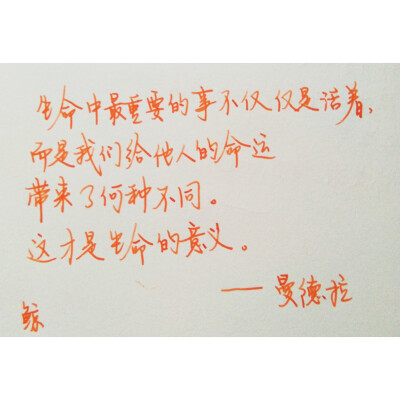 生命中最重要的事不仅仅是活着,
而是我们给他人的命运
带来了何种不同。
这才是生命的意义。
——曼德拉
鲸